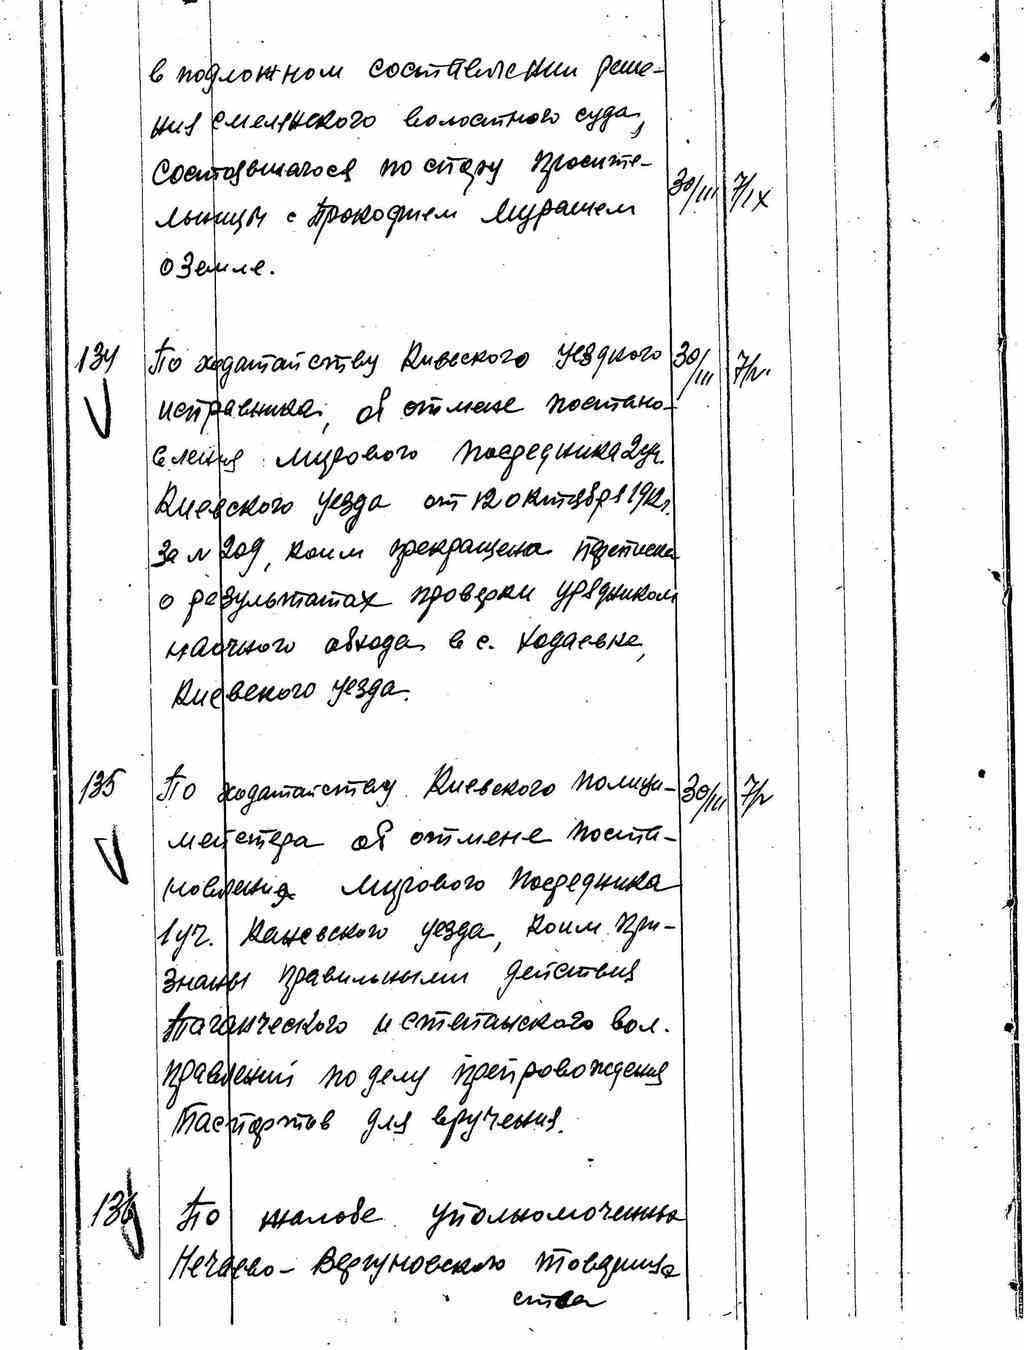 в подложном составлении реше-
ния Смелянского волостного суда,
состоявшагося по спору просите-
30/III 7/IX
льницы с Прокофием Мурашем
о земле.
134 По ходатайству Киевского уездного 30/III 7/V
исправника, об отмене постано-
вления мирового посредника 2 уч.
Киевского уезда от 12 октября 1912 г.
за № 209, коим прекращена переписка
о результатах проверки урядником
ночного обхода в с. Ходаевке,
Киевского уезда.
135 По ходатайству Киевского полици- 30/III 7/V
мейстера об отмене поста-
новления мирового посредника
1 уч. Каневского уезда, коим при-
знаны правильными действия
Таганческого и Степанского вол.
правлений по делу препровождения
паспортов для вручения.
136 По жалобе уполномоченных
Нечаево-Вергуновского товарище
ства